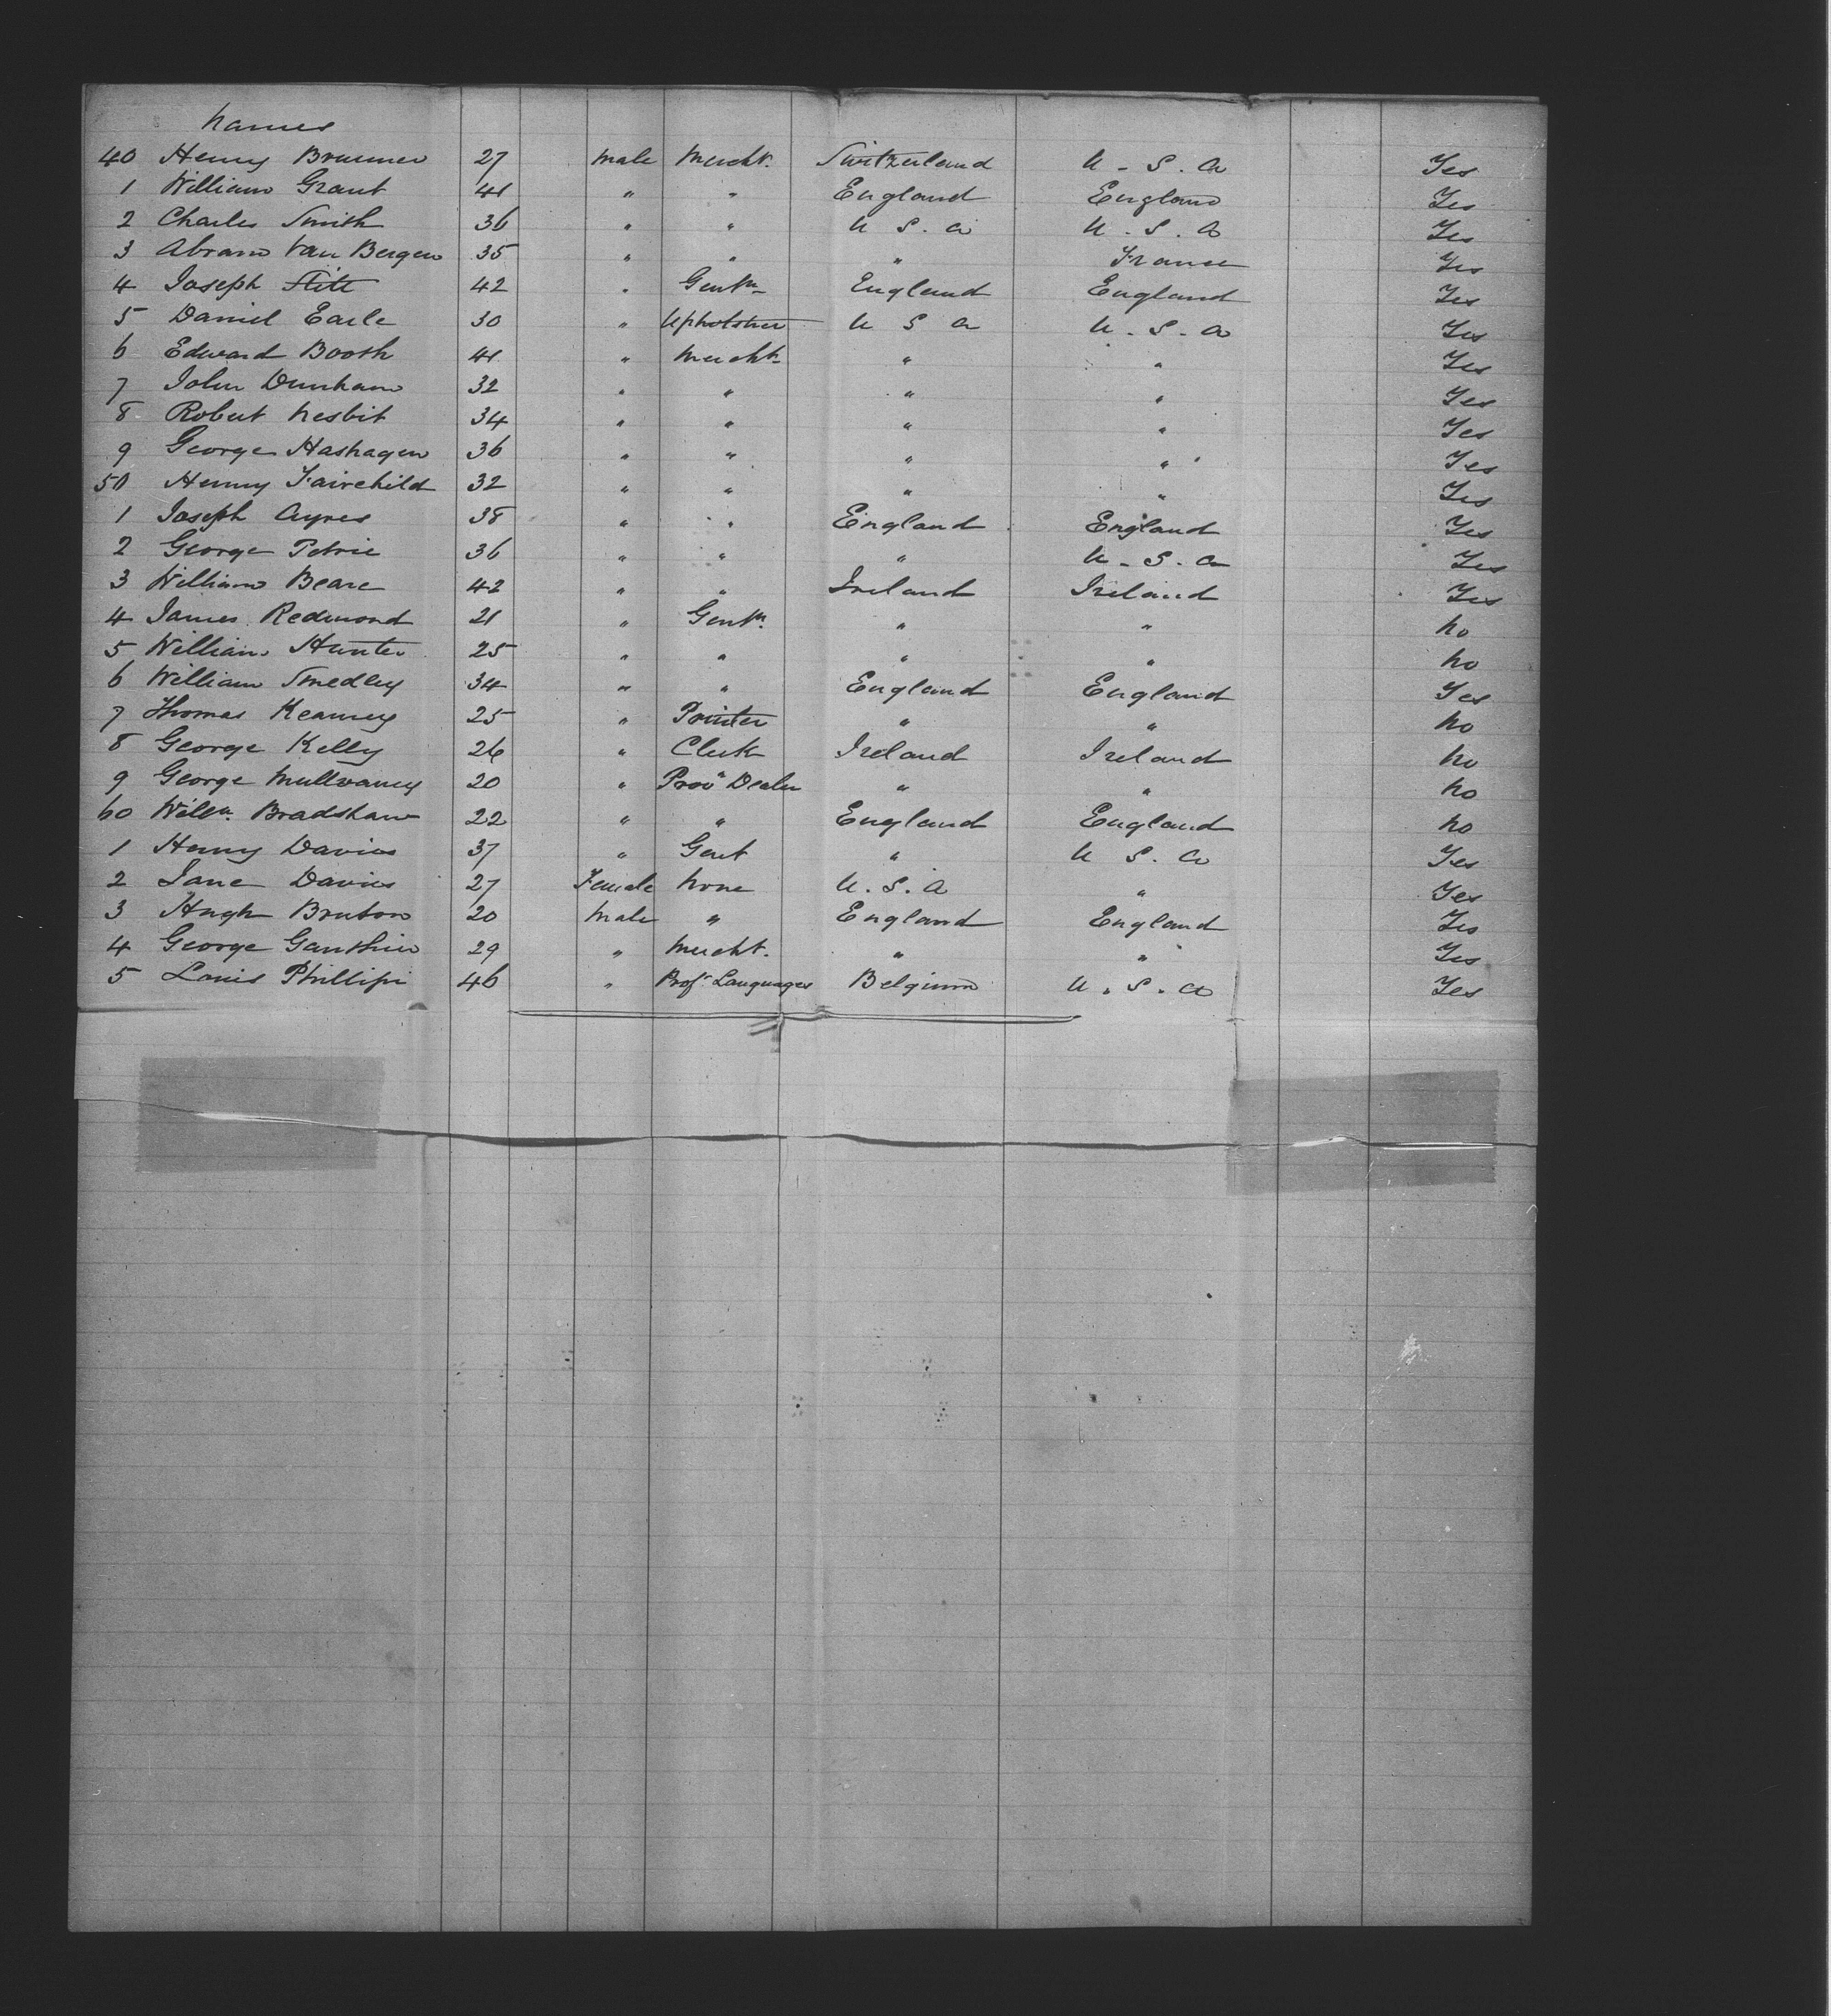 Names
40 Henry Brunner 27 Male Mercht. Switzerland U. S. A Yes
1 William Grant 41 " " England England Yes
2 Charles Smith 36 " " U S. A U. S. A Yes
3 Abram Van Bergen 35 " " " France Yes
4 Joseph Fitt 42 " Gentn England England Yes
5 Daniel Earle 30 " Upholsterer U S A U. S. A Yes
6 Edward Booth 41 " Mercht. " " Yes
7 John Dunham 32 " " " " Yes
8 Robert Nesbit 34 " " " " Yes
9 George Hashagen 36 " " " " Yes
50 Henry Fairchild 32 " " " " Yes
1 Joseph Ayres 38 " " England England Yes
2 George Petrie 36 " " " U. S. A Yes
3 William Beare 42 " " Ireland Ireland Yes
4 James Redmond 21 " Gentn. " " No
5 William Hunter 25 " " " " No
6 William Smedley 34 " " England England Yes
7 Thomas Kearney 25 " Painter " " No
8 George Kelly 26 " Clerk Ireland Ireland No
9 George Mullvaney 20 " Provn Dealer " " No
60 Willm. Bradshaw 22 " " England England No
1 Henry Davies 37 " Gent " U S. A Yes
2 Jane Davies 27 Female None U. S. A " Yes
3 Hugh Bruton 20 Male " England England Yes
4 George Ganthier 29 " Mercht. " " Yes
5 Louis Phillipi 46 " Prof. Languages Belgium U. S. A Yes